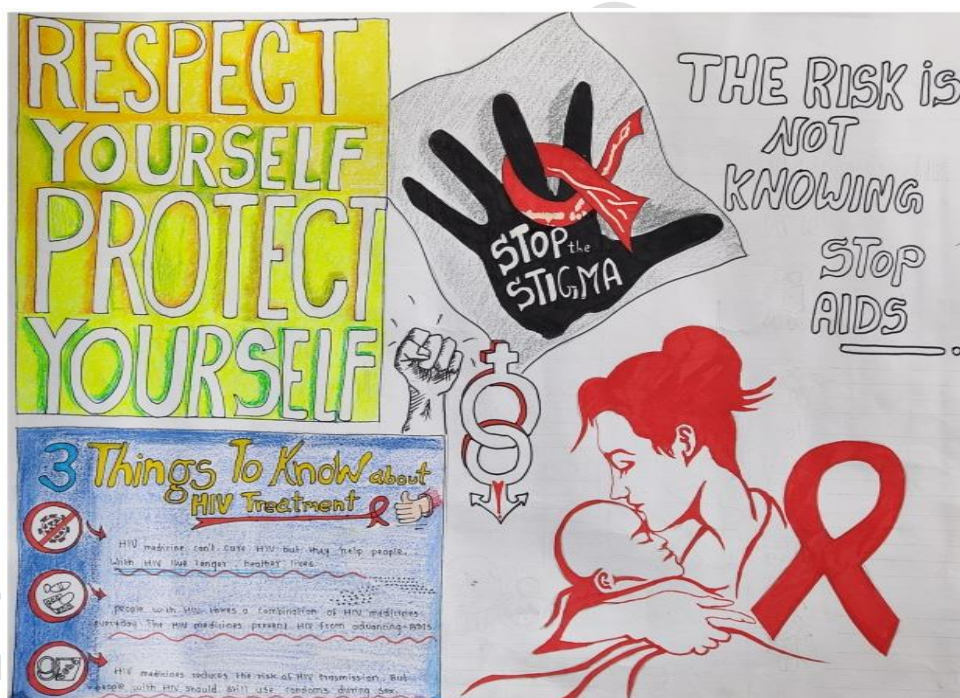 RESPECT
YOURSELF
PROTECT
YOURSELF
STOP the
STIGMA
THE RISK is
NOT
KNOWING
STOP
AIDS
3 Things To Know about
HIV Treatment
HIV medicine can't cure HIV but they help people.
With HIV live longer, healther lives.
people with HIV takes a combination of HIV medicines
everyday. The HIV medicines prevent HIV from advancing-AIDS
HIV medicines reduces the risk of HIV trasmission. But
people with HIV should still use condoms during sex.